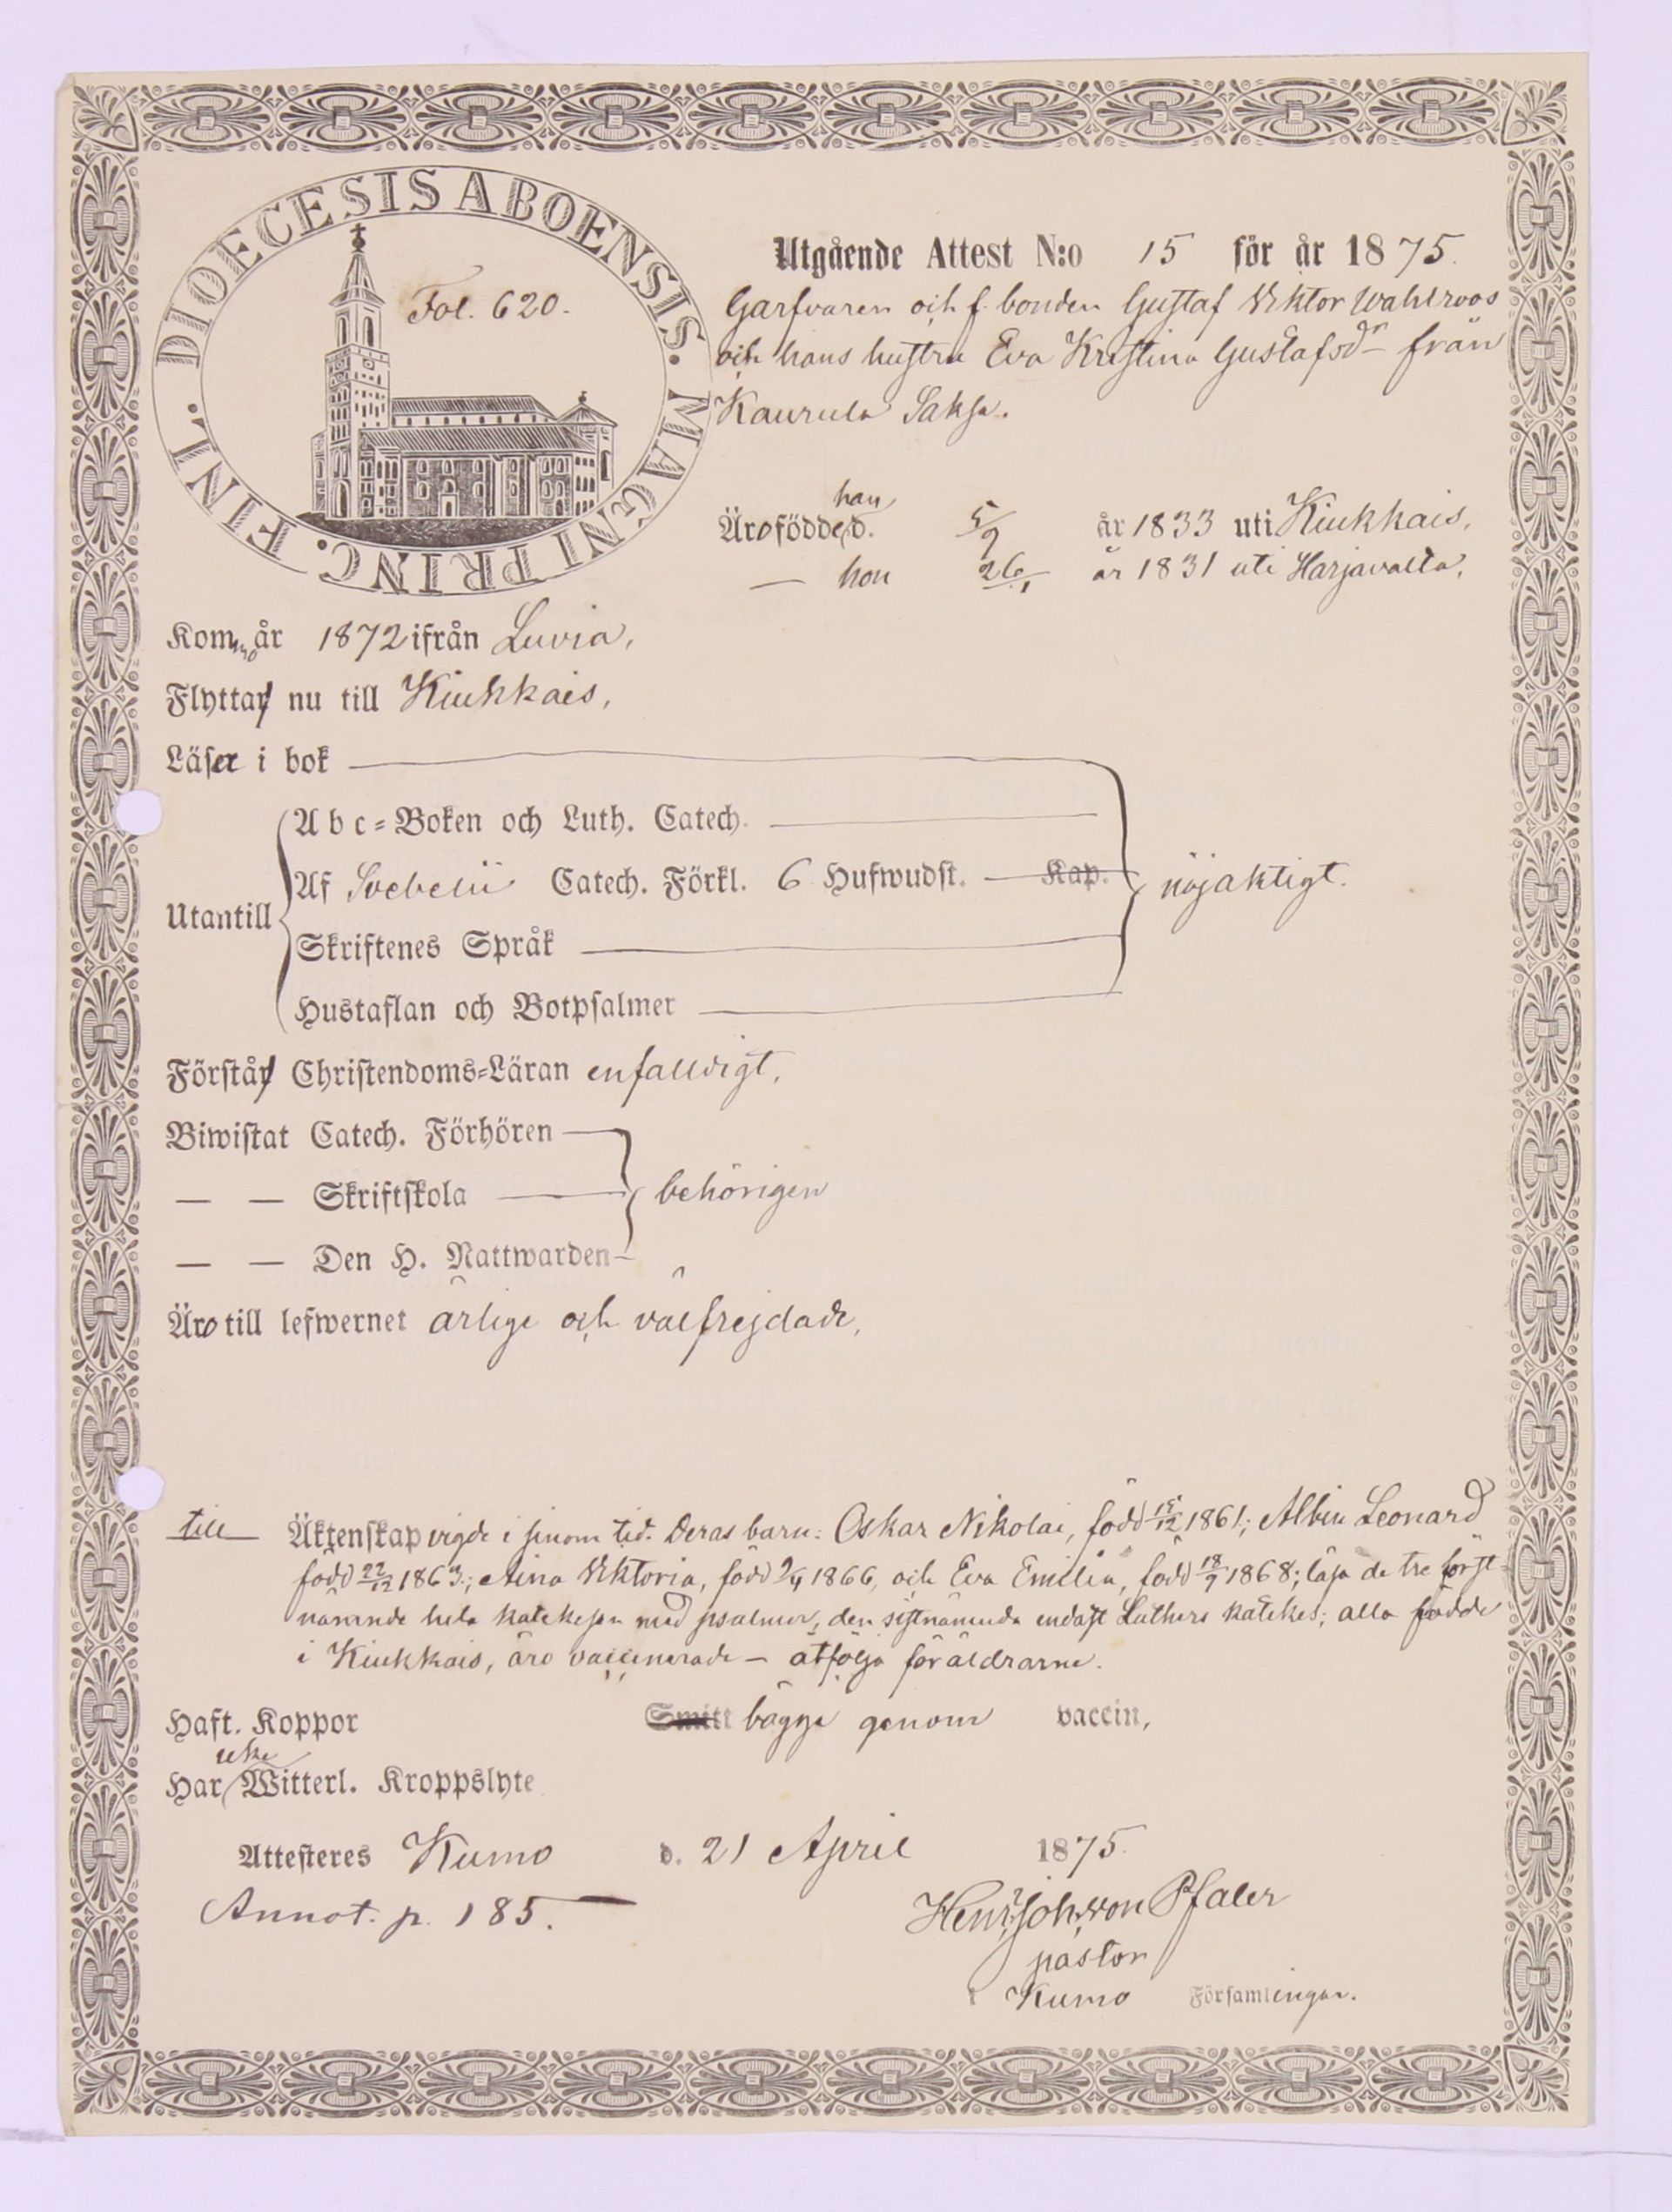 DIOECESIS ABOENSIS. MAGNI PRINC. FINL.
Fol. 620.
Utgående Attest N:o 15 för år 1875.
Garfvaren och f. bonden Gustaf Viktor Wahlroos
och hans hustru Eva Kristina Gustafsdr från
Kaurula Saksa.
han
Äro födde d. 5/9 år 1833 uti Kiukkais,
— hon 26/1 år 1831 uti Harjavalta,
Kommo år 1872 ifrån Luvia,
Flytta nu till Kiukkais,
Läser i bok
Abc-Boken och Luth. Catech.
Af Svebelii Catech. Förkl. 6 Hufwudst. — Kap.
nöjaktigt.
Utantill
Skriftenes Språk
Hustaflan och Botpsalmer
Förstå Christendoms-Läran enfalldigt,
Biwistat Catech. Förhören
— — Skriftskola
behörigen
— — Den H. Nattwarden
Äro till lefwernet ärlige och välfrejdade,
till Äktenskap vigde i sinom tid. Deras barn: Oskar Nikolai, född 15/12 1861; Albin Leonard
född 22/12 1863; Aina Viktoria, född 9/4 1866, och Eva Emilia, född 18/9 1868; läsa de tre först-
nämnde hela katekesen med psalmer, den sistnämnda endast Luthers katekes; alla födde
i Kiukkais, äro vaccinerade — åtfölja föräldrarne.
Haft. Koppor Smitt bägge genom vaccin,
icke
Har Witterl. Kroppslyte
Attesteres Kumo d. 21 April 1875.
Annot. p. 185.
Henr. Joh. von Pfaler
pastor
i Kumo Församlingar.